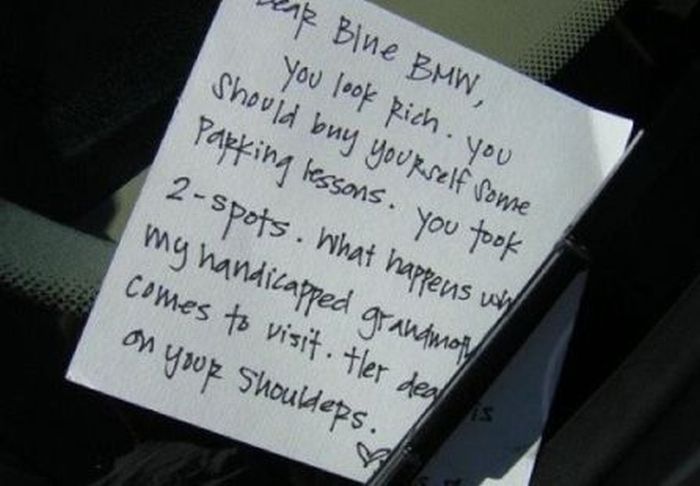 Dear Blue BMW,
You look Rich. You
Should buy yourself some
Parking lessons. You took
2-spots. What happens
my handicapped
comes to visit. Her
on your shoulders.
is